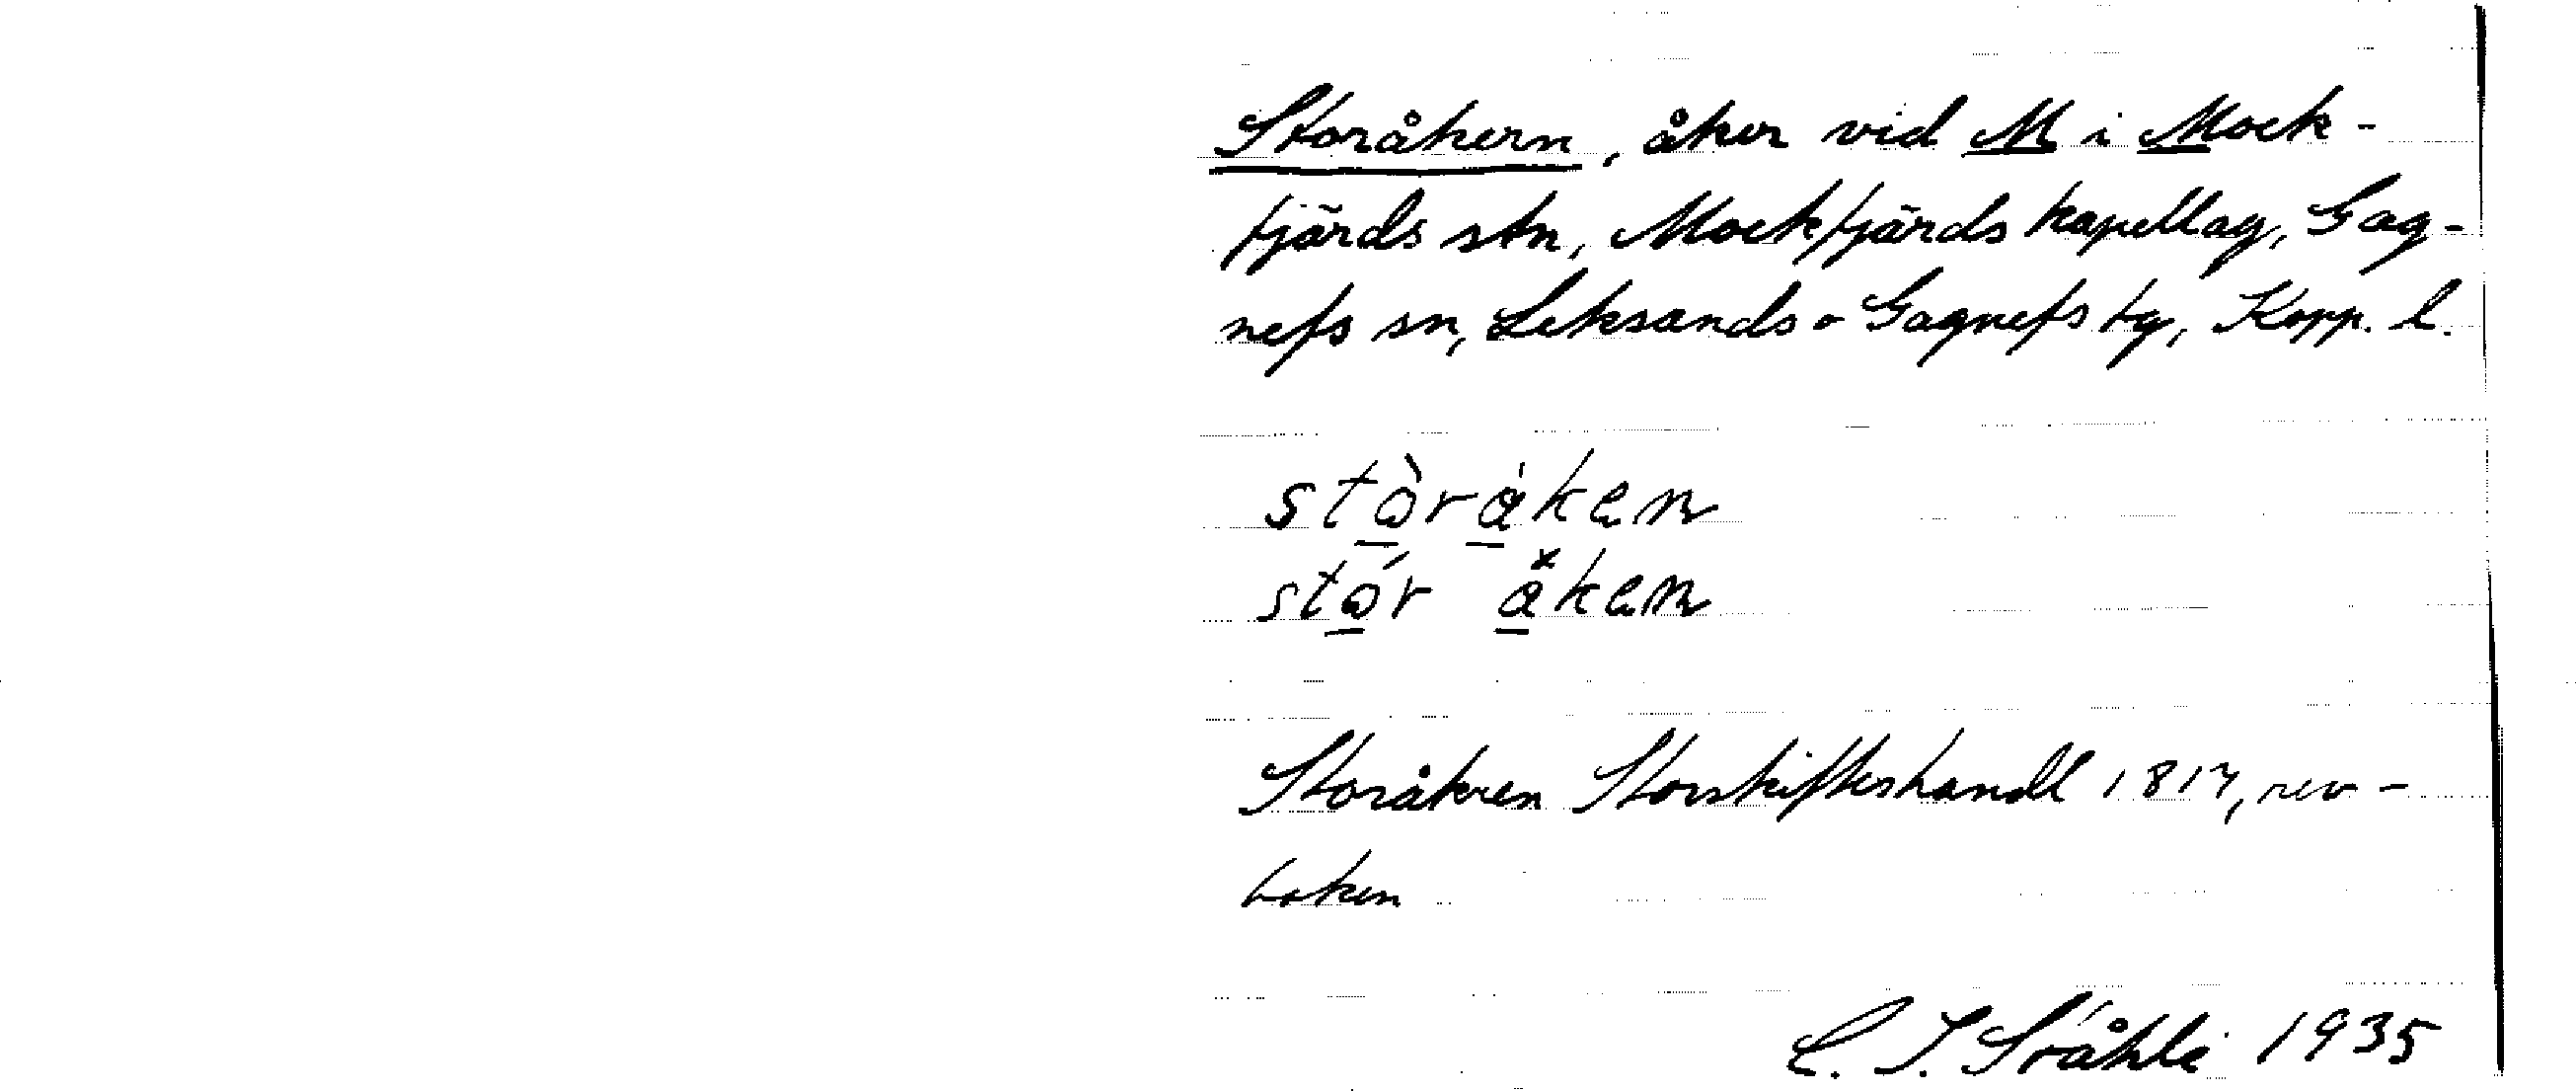 Storåkern, åker vid M i Mock-
fjärds stn, Mockfjärds kapellag, Gag-
nefs sn, Leksands o Gagnefs tg, Kopp. l.
stòràken
stór åken
Storåkren Storskifteshandl 1817, rev-
boken
C. I. Ståhle 1935